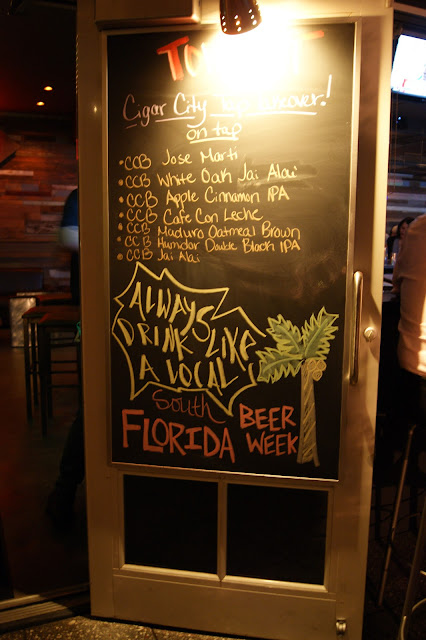 Cigar City Tap Takeover!
on tap
• CCB Jose Marti
• CCB White Oak Jai Alai
• CCB Apple Cinnamon IPA
• CCB Cafe Con Leche
• CCB Maduro Oatmeal Brown
• CCB Humidor Double Black IPA
• CCB Jai Alai
ALWAYS
DRINK LIKE
A LOCAL
South
FLORIDA BEER
WEEK